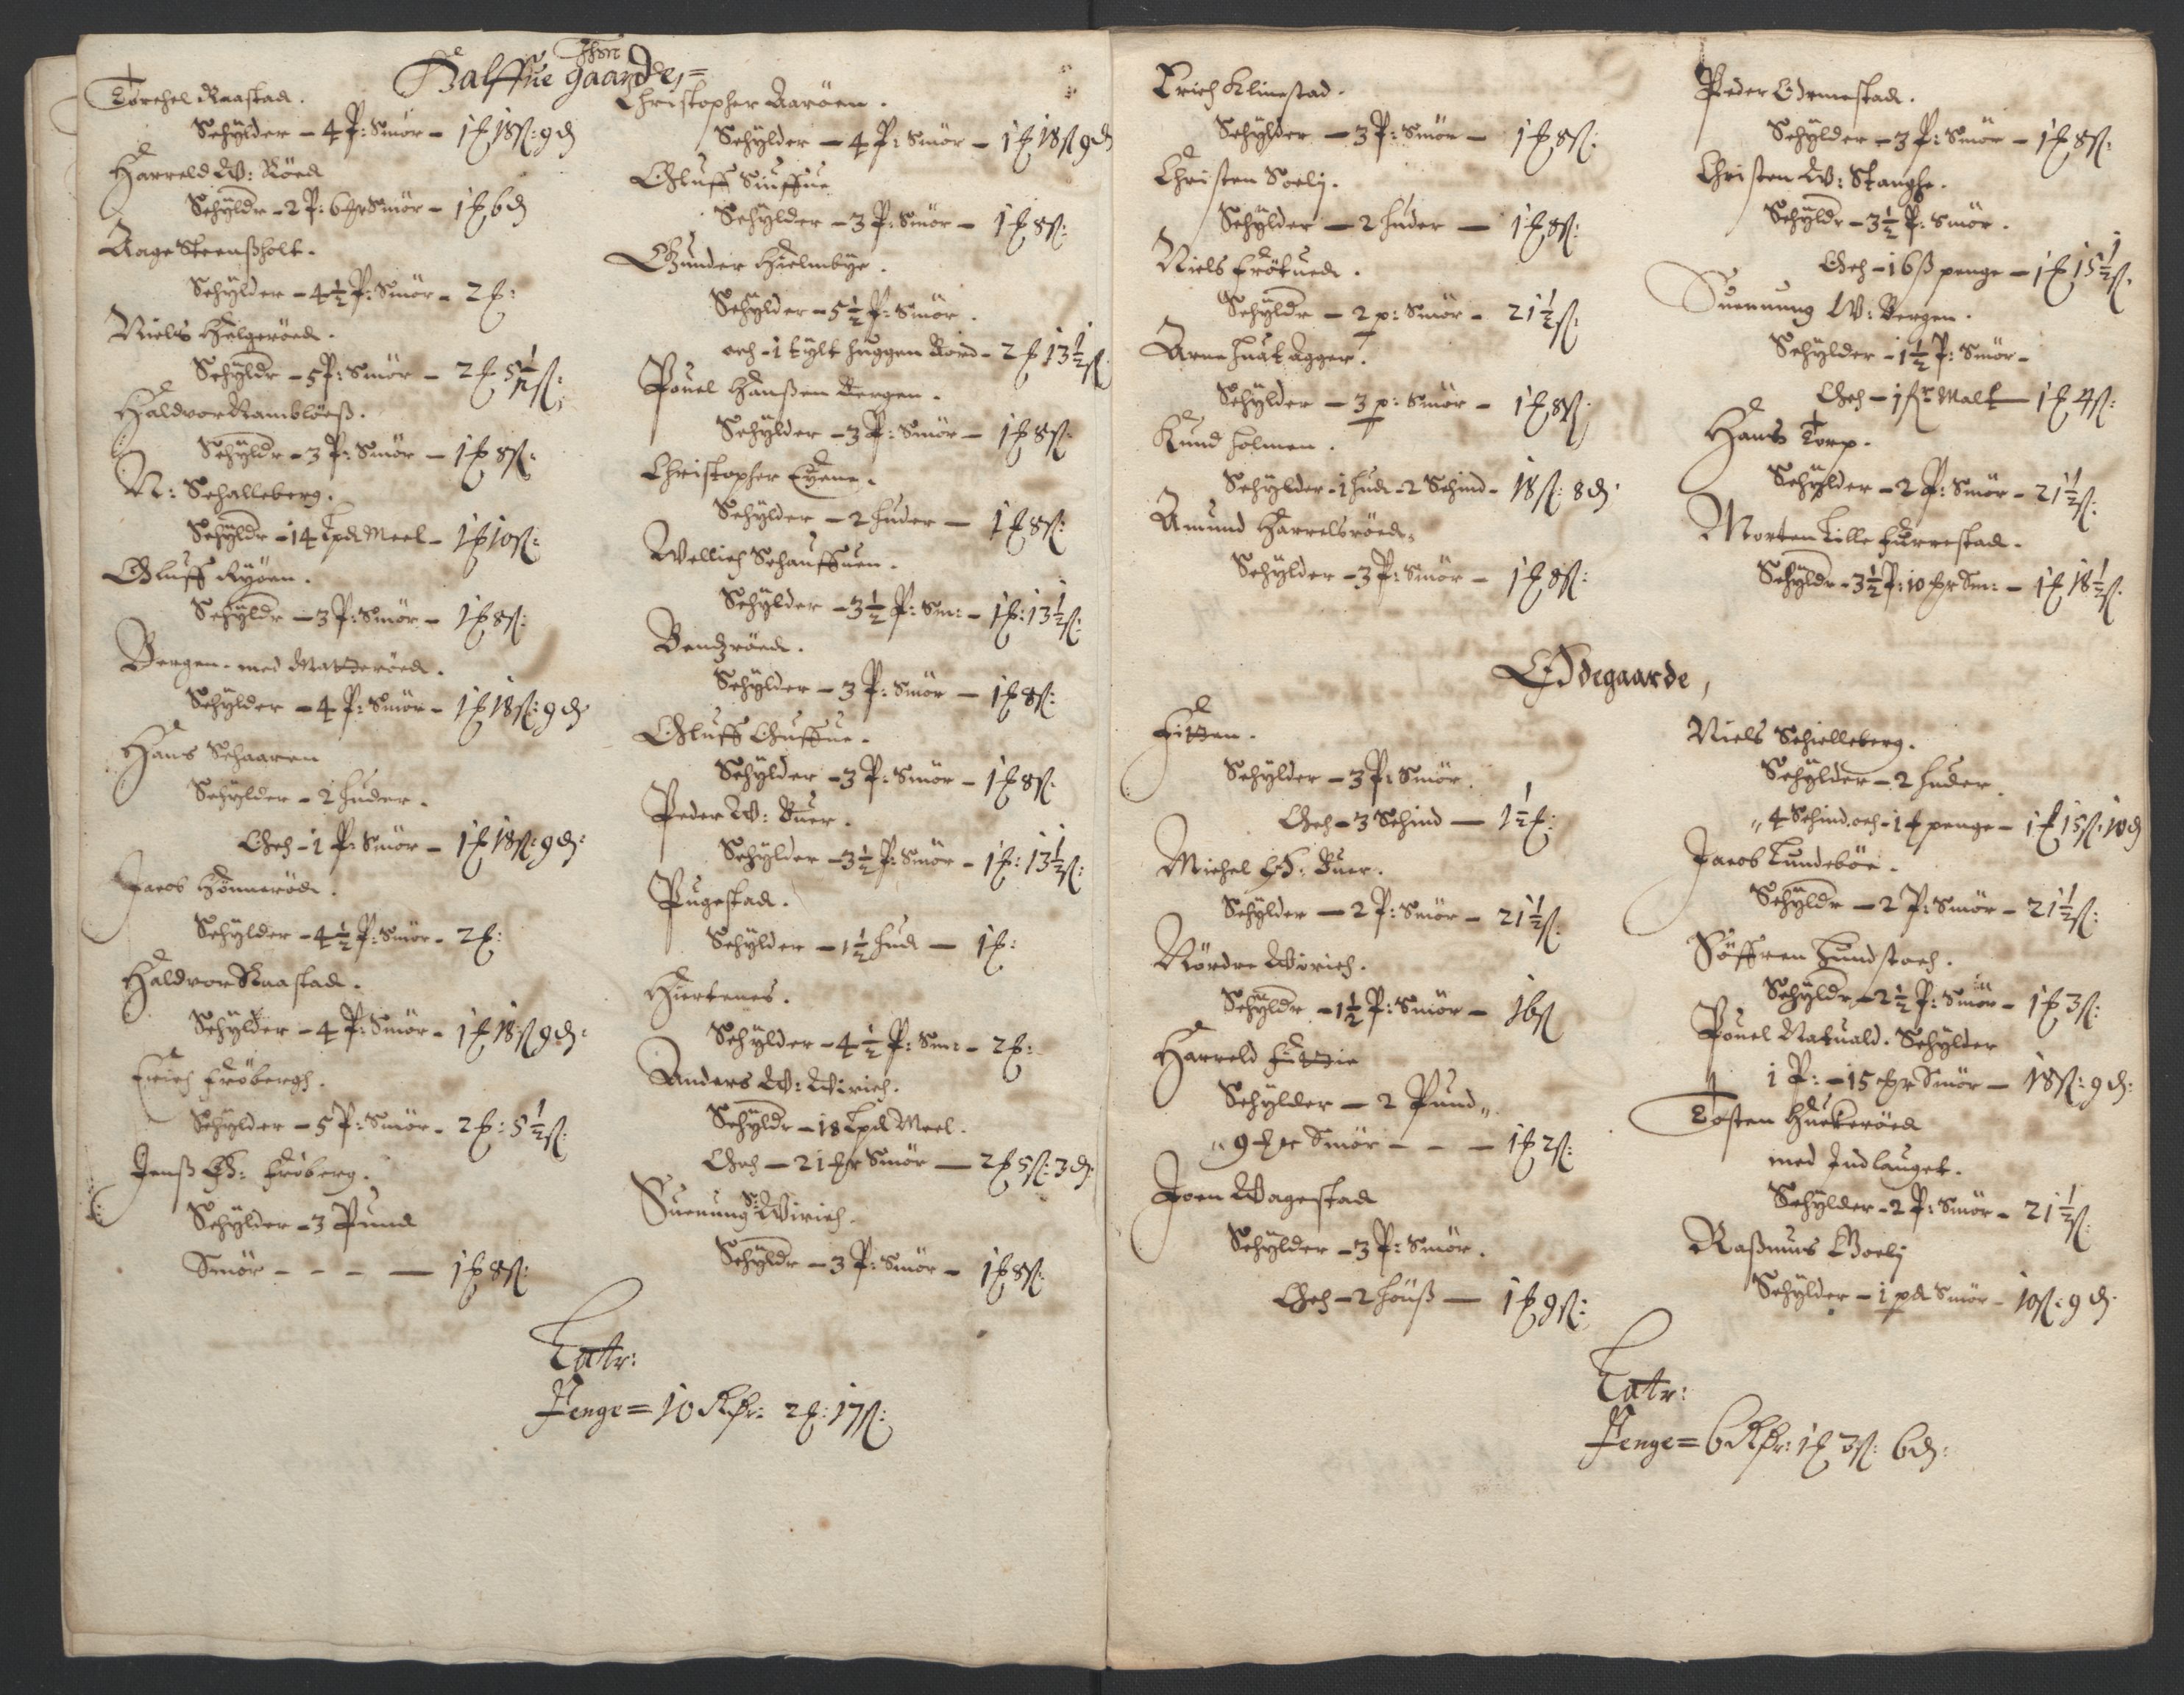 Halffue gaarde,
Torchel Raastad.
Schylder - 4 P: Smör - 1 ℔ 18 ß: 9 ₰
Harreld W: Röed
Schyldr - 2 P: 6 mr Smör - 1 ℔ 6 ₰
Aage Steensholt.
Schylder - 4½ P: Smör - 2 ℔:
Niels Helgeröed.
Schyldr - 5 P: Smör - 2 ℔ 5½ ß:
Haldvor Ramblöess.
Schyldr - 3 P: Smör - 1 ℔ 8 ß:
N: Schalleberg.
Schyldr - 14 Lpd Meel - 1 ℔ 10 ß:
Oluff Ryöen.
Schyldr - 3 P: Smör - 1 ℔ 8 ß:
Bergen med Natteröed.
Schylder - 4 P: Smör - 1 ℔ 18 ß: 9 ₰
Hans Schaaren
Schylder - 2 huder.
Och - 1 P: Smör - 1 ℔ 18 ß: 9 ₰:
Jacob Hönneröd.
Schylder - 4½ P: Smör - 2 ℔:
Haldvor Raastad.
Schylder - 4 P: Smör - 1 ℔ 18 ß 9 ₰:
Erich Fröbergh.
Schylder - 5 P: Smör - 2 ℔: 5½ ß:
Jenß Ö: Fröberg.
Schylder - 3 Pund
Smör - - - - 1 ℔ 8 ß:
Christopher Aaröen.
Schylder - 4 P: Smör - 1 ℔ 18 ß 9 ₰
Oluff Siuffue
Schylder - 3 P: Smör - 1 ℔ 8 ß:
Gunder Hielmbye.
Schylder - 5½ P: Smör.
och - 1 tylt huggen Bord - 2 ℔ 13½ ß
Pouel Hanßen Bergen.
Schylder - 3 P: Smör - 1 ℔ 8 ß:
Christopher Eyene.
Schylder - 2 huder - 1 ℔ 8 ß:
Wellich Schauffuen.
Schylder - 3½ P: Sm: - 1 ℔: 13½ ß:
Bendzröed.
Schylder - 3 P: Smör - 1 ℔ 8 ß:
Oluff Guffue.
Schylder - 3 P: Smör - 1 ℔ 8 ß:
Peder W: Buer.
Schylder - 3½ P: Smör - 1 ℔: 13½ ß:
Pugestad.
Schylder - 1½ hud - 1 ℔:
Hiertenes.
Schylder - 4½ P: Sm: - 2 ℔:
Anders W: Wirich.
Schyldr - 18 Lpd Meel.
Och - 21 mr Smör - 2 ℔ 5 ß: 3 ₰
Suenung S: Wirich.
Schyldr - 3 P: Smör - 1 ℔ 8 ß:
Latr:
Penge = 10 Rdr: 2 ℔: 17 ß:
Erich Klinestad.
Schylder - 3 P: Smör - 1 ℔ 8 ß:
Christen Soelij.
Schylder - 2 huder - 1 ℔ 8 ß:
Niels Frötued.
Schyldr - 2 p: Smör - 21½ ß:
Arne Huatagger.
Schylder - 3 p: Smör - 1 ℔ 8 ß:
Knud Holmen.
Schylder - 1 hud - 2 Schind - 18 ß: 8 ₰:
Amund Harrelsröed.
Schylder - 3 P: Smör - 1 ℔ 8 ß:
Peder Ormestad.
Schylder - 3 P: Smör - 1 ℔ 8 ß:
Christen W: Stanghe.
Schyldr - 3½ P: Smör.
Och - 16 ß penge - 1 ℔ 15½ ß.
Suenung W: Bergen.
Schylder - 1½ P: Smör -
Och - 1 fr Malt - 1 ℔ 4 ß:
Hans Torp.
Schylder - 2 P: Smör - 21½ ß:
Morten Lille Furrestad.
Schyldr - 3½ P: 10 mr Sm: - 1 ℔ 18½ ß.
Ödegaarde,
Fitten.
Schylder - 3 P: Smör.
Och - 3 Schind - 1½ ℔:
Michel Ö: Buer.
Schylder - 2 P: Smör - 21½ ß.
Nördre Wirich.
Schyldr - 1½ P: Smör - 16 ß
Harreld Fittie
Schylder - 2 Pund „
„ 9 mr Smör - - - 1 ℔ 2 ß:
Joen Wagestad
Schylder - 3 P: Smör.
Och - 2 höuß - 1 ℔ 9 ß:
Niels Schielleberg.
Schylder - 2 huder.
„ 4 Schind och - 1 ℔ penge - 1 ℔ 15 ß: 10 ₰
Jacob Lundeböe.
Schyldr - 2 P: Smör - 21½ ß:
Söffren Hundstoch.
Schyldr - 2½ P: Smör - 1 ℔ 3 ß:
Pouel Natuald. Schylder
1 P: - 15 mr Smör - 18 ß: 9 ₰:
Tosten Huckeröed
med Indlauget.
Schylder - 2 P: Smör - 21½ ß:
Raßmus Goelij
Schylder - 1 pd Smör - 10 ß: 9 ₰.
Latr:
Penge = 6 Rdr: 1 ℔ 3 ß: 6 ₰: